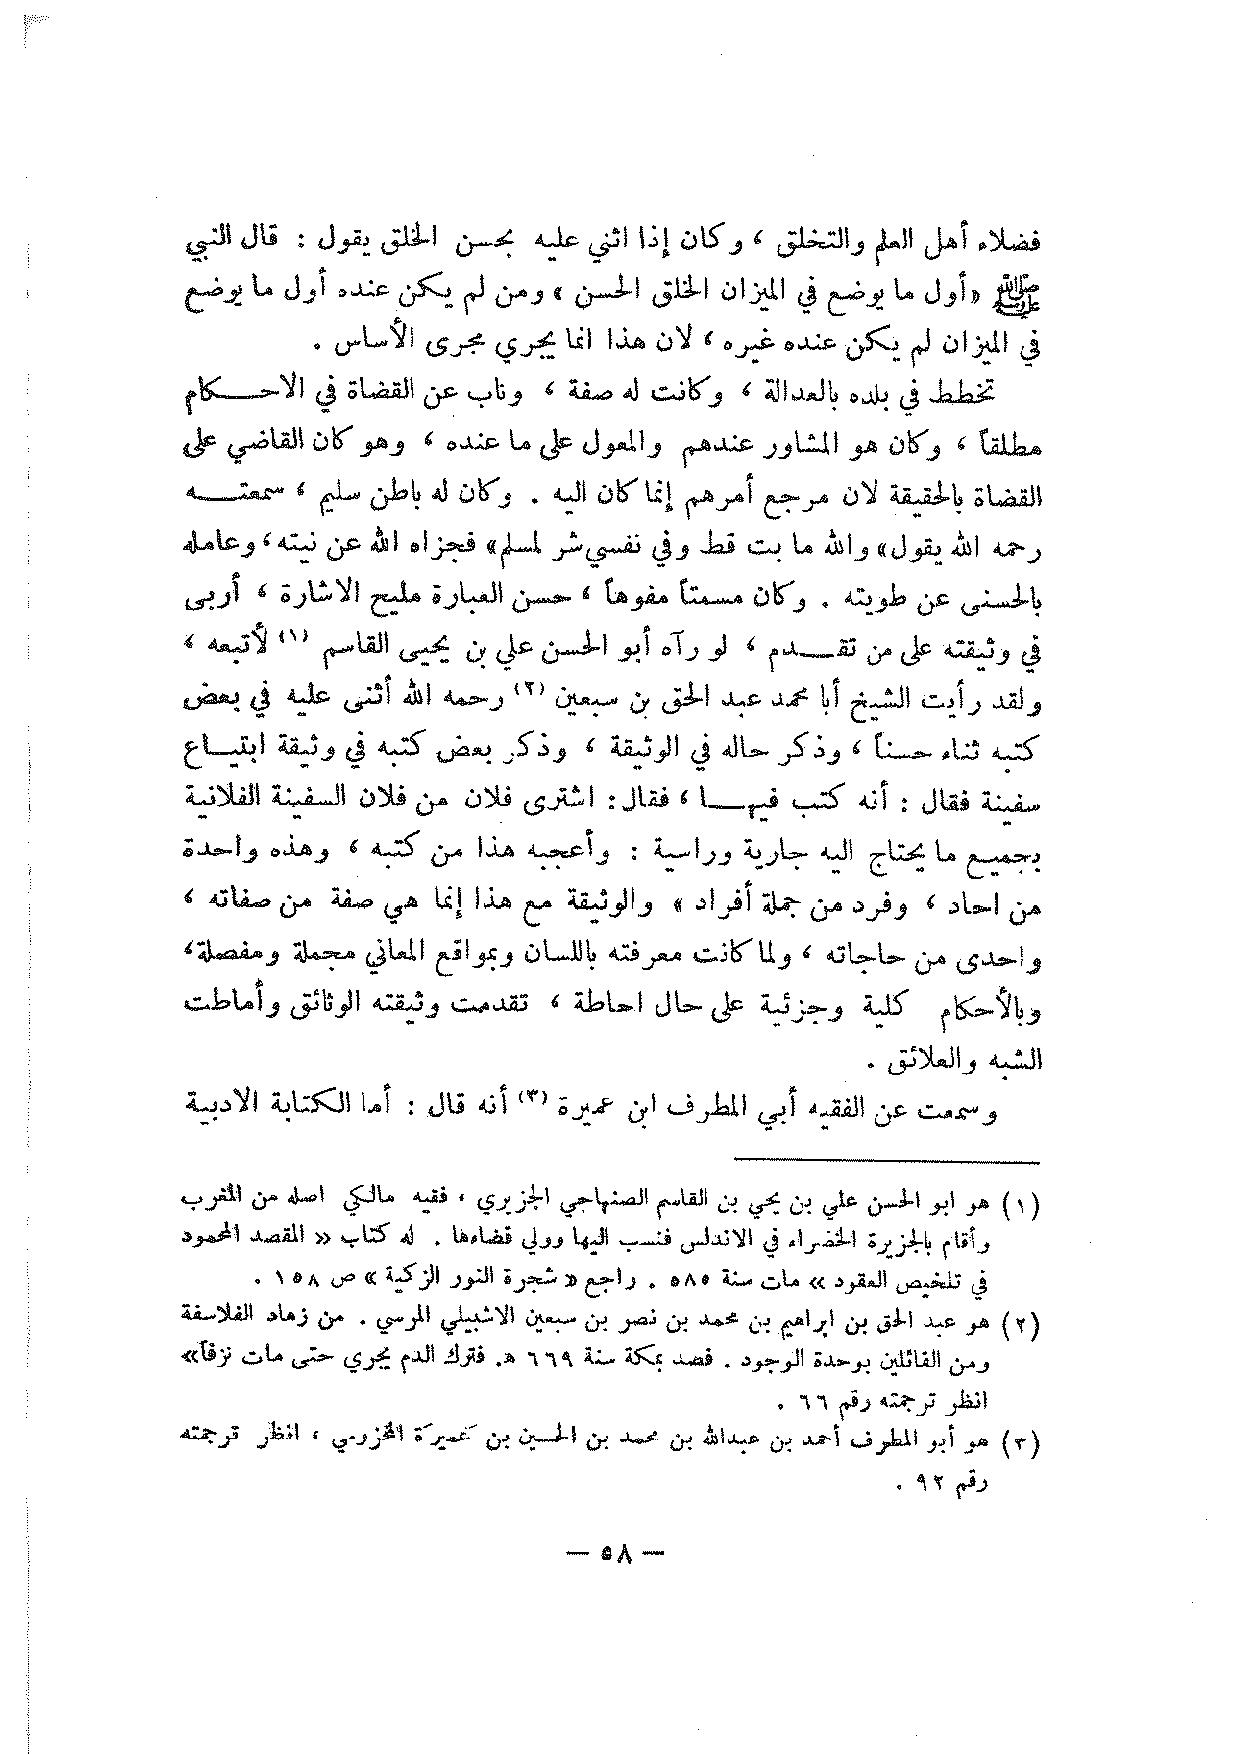 فضلاء أهل العلم والتخلق ، وكان إذا اثني عليه بحسن الخلق يقول : قال النبي
ﷺ «أول ما يوضع في الميزان الخلق الحسن » ومن لم يكن عنده أول ما يوضع
في الميزان لم يكن عنده غيره ، لان هذا انما يجري مجرى الأساس .
تخطط في بلده بالعدالة ، وكانت له صفة ، وناب عن القضاة في الاحــكام
مطلقاً ، وكان هو المشاور عندهم والمعول على ما عنده ، وهو كان القاضي على
القضاة بالحقيقة لان مرجع أمرهم إنما كان اليه . وكان له باطن سليم ، سمعتــه
رحمه الله يقول» والله ما بت قط وفي نفسي شر لمسلم» فجزاه الله عن نيته، وعامله
بالحسنى عن طويته . وكان مسمتاً مفوهاً ، حسن العبارة مليح الاشارة ، أربى
في وثيقته على من تقــدم ، لو رآه أبو الحسن علي بن يحيى القاسم (١) لأتبعه ،
ولقد رأيت الشيخ أبا محمد عبد الحق بن سبعين (٢) رحمه الله أثنى عليه في بعض
كتبه ثناء حسناً ، وذكر حاله في الوثيقة ، وذكر بعض كتبه في وثيقة ابتيــاع
سفينة فقال : أنه كتب فيهــا ، فقال: اشترى فلان من فلان السفينة الفلانية
بجميع ما يحتاج اليه جارية وراسية : وأعجبه هذا من كتبه ، وهذه واحدة
من احاد ، وفرد من جملة أفراد » والوثيقة مع هذا إنما هي صفة من صفاته ،
واحدى من حاجاته ، ولما كانت معرفته باللسان وبمواقع المعاني مجملة ومفصلة،
وبالأحكام كلية وجزئية على حال احاطة ، تقدمت وثيقته الوثائق وأماطت
الشبه والعلائق .
وسمعت عن الفقيه أبي المطرف ابن عميرة (٣) أنه قال : أما الكتابة الادبية
(١) هو ابو الحسن علي بن يحي بن القاسم الصنهاجي الجزيري ، فقيه مالكي اصله من المغرب
وأقام بالجزيرة الخضراء في الاندلس فنسب اليها وولي قضاءها . له كتاب « المقصد المحمود
في تلخيص العقود » مات سنة ٥٨٥ . راجع « شجرة النور الزكية » ص ١٥٨ .
(٢) هو عبد الحق بن ابراهيم بن محمد بن نصر بن سبعين الاشبيلي المرسي . من زهاد الفلاسفة
ومن القائلين بوحدة الوجود . فصد بمكة سنة ٦٦٩ هـ. فترك الدم يجري حتى مات نزفاً»
انظر ترجمته رقم ٦٦ .
(٣) هو أبو المطرف أحمد بن عبدالله بن محمد بن الحسين بن عَميرَة المخزومي ، انظر ترجمته
رقم ٩٢ .
— ٥٨ —